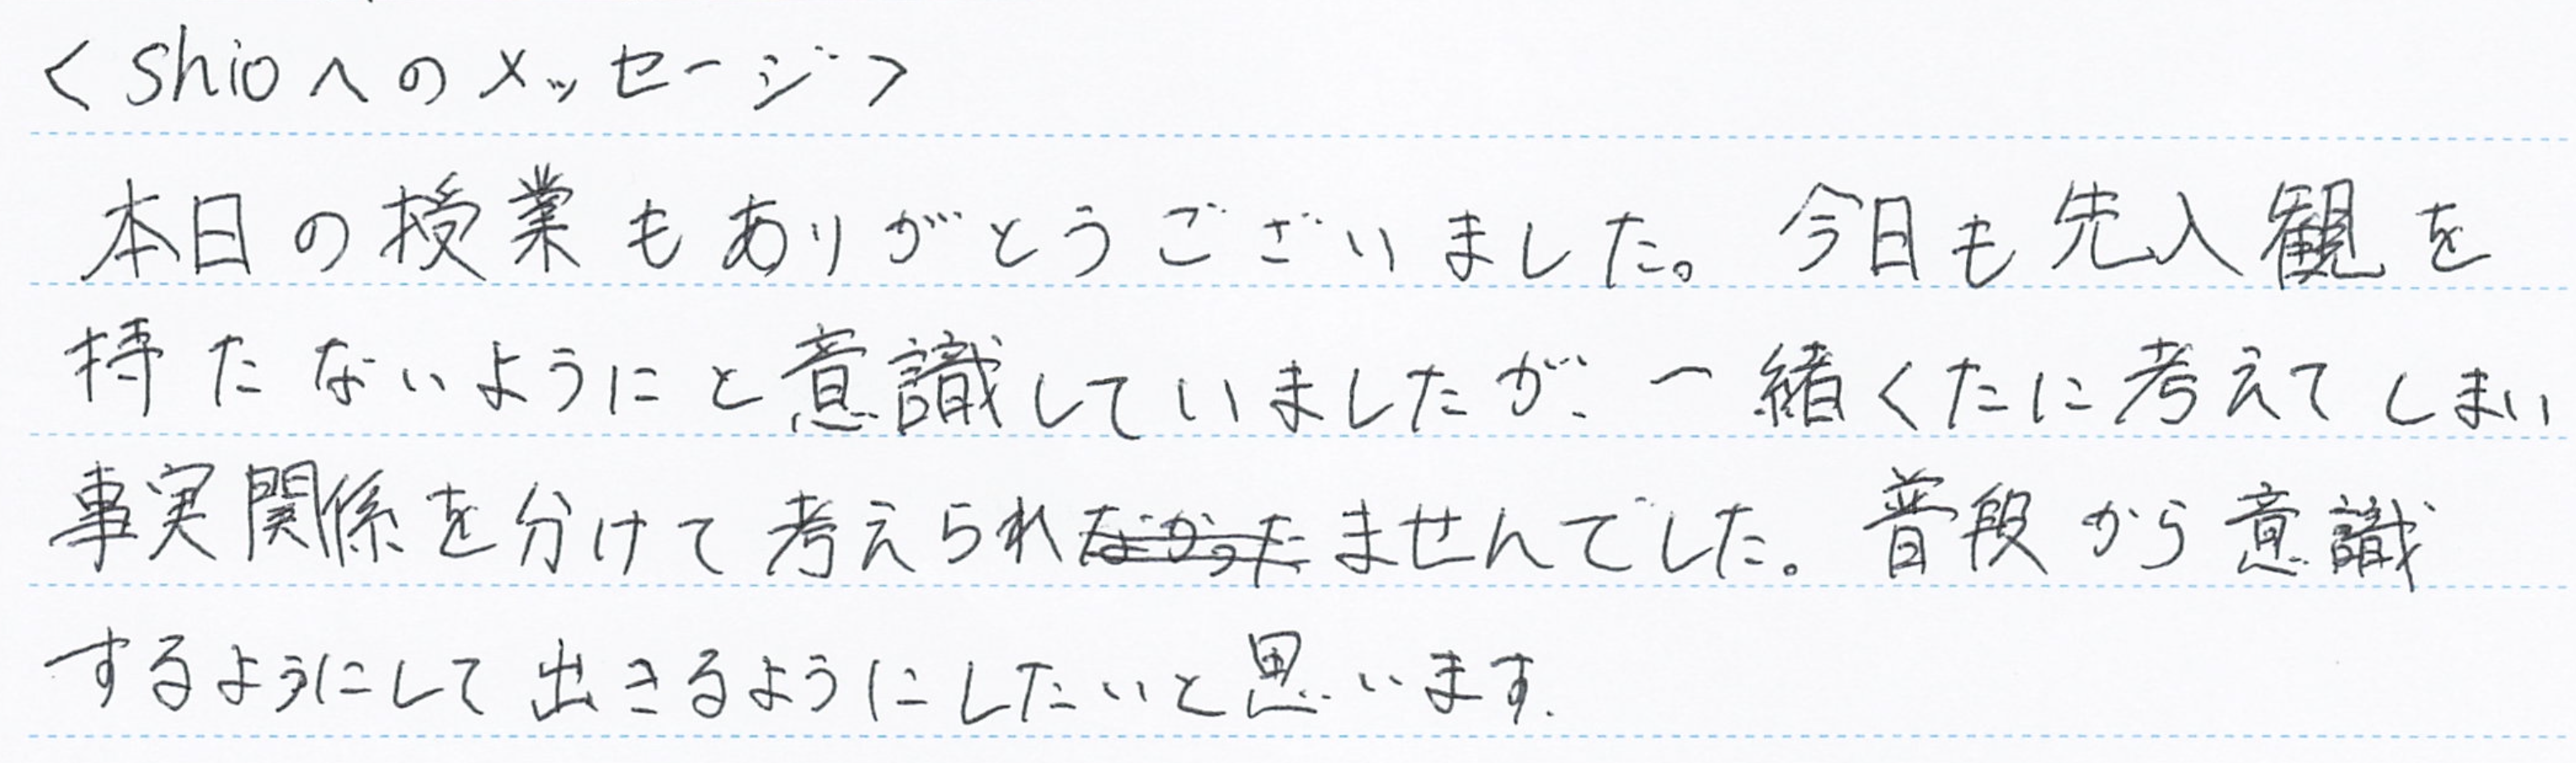 <shioへのメッセージ>
本日の授業もありがとうございました。今日も先入観を
持たないようにと意識していましたが、一緒くたに考えてしまい
事実関係を分けて考えられなかったませんでした。普段から意識
するようにして出きるようにしたいと思います.